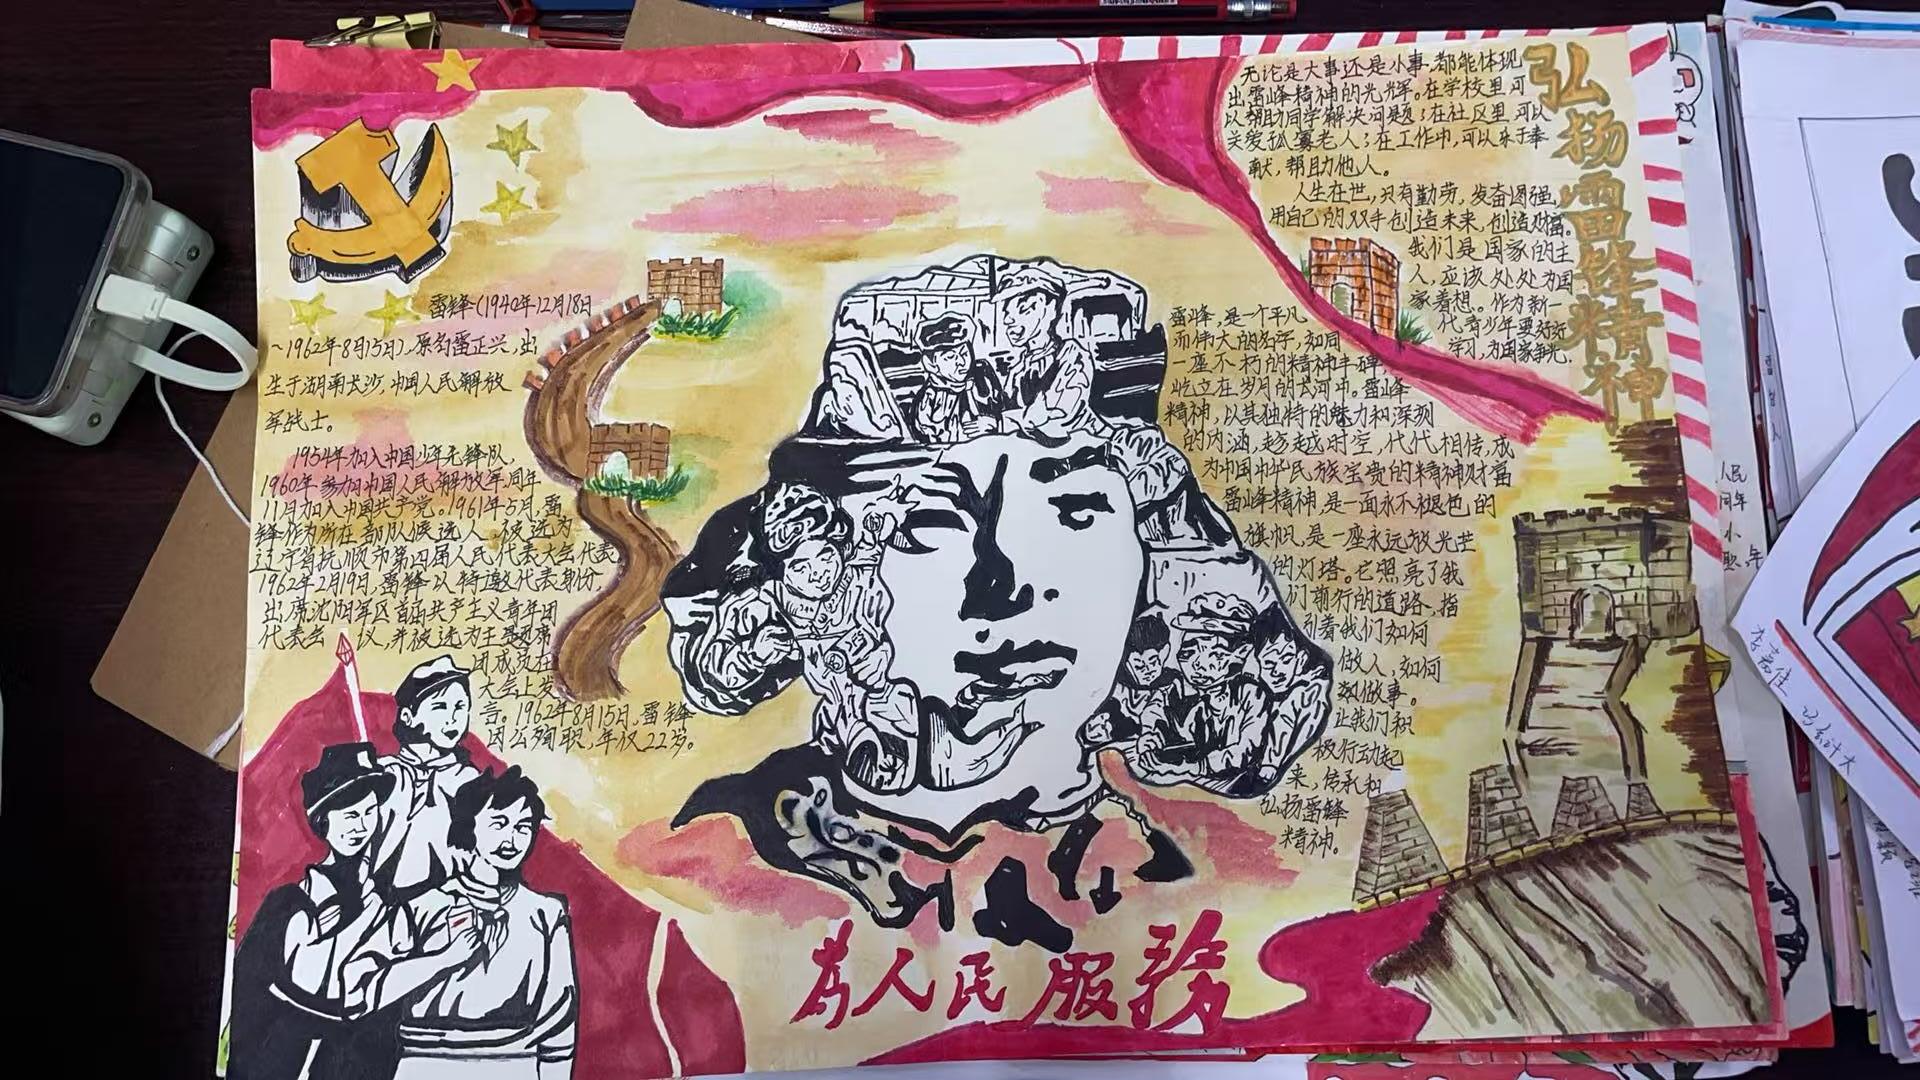 弘扬雷锋精神
雷锋(1940年12月18日
~1962年8月15日),原名雷正兴,出
生于湖南长沙,中国人民解放
军战士。
1954年加入中国少年先锋队,
1960年参加中国人民解放军,同年
11月加入中国共产党。1961年5月,雷
锋作为所在部队候选人,被选为
辽宁省抚顺市第四届人民代表大会代表
1962年2月19日,雷锋以特邀代表身份,
出席沈阳军区首届共产主义青年团
代表会 议,并被选为主席团
团成员在
大会上发
言。1962年8月15日,雷锋
因公殉职,年仅22岁。
雷峰,是一个平凡
而伟大的名字,如同
一座不朽的精神丰碑
屹立在岁月的长河中。雷峰
精神,以其独特的魅力和深刻
的内涵,超越时空,代代相传,成
为中国中华民族宝贵的精神财富
雷峰精神,是一面永不褪色的
旗帜,是一座永远放光芒
的灯塔。它照亮了我
们前行的道路,指
引着我们如何
做人,如何
做事。
让我们积
极行动起
来,传承和
弘扬雷锋
精神。
无论是大事还是小事,都能体现
出雷峰精神的光辉。在学校里,可
以帮助同学解决问题;在社区里,可以
关爱孤寡老人;在工作中,可以乐于奉
献,帮助他人。
人生在世,只有勤劳,发奋图强,
用自己的双手创造未来,创造财富。
我们是国家的主
人,应该处处为国
家着想。作为新一
代青少年要好好
学习,为国家争光。
為人民服務
人民
同年
小